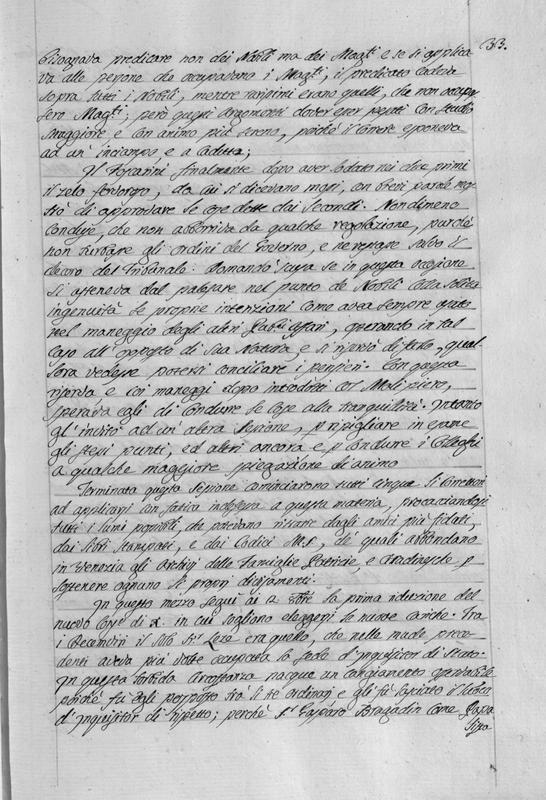 33.
Bisognava predicare non dei Nobili ma dei Magti e se si applica
va alle persone che occupavano i Magti, il predicato cadeva
sopra tutti i Nobili, mentre rarissimi erano quelli, che non occupas
sero Magti; però questi argomenti dover esser pesati con studio
maggiore e con animo più sereno, poichè il calore esponeva
ad un' inciampo e a caduta;
Il Foscarini finalmente dopo aver lodato nei due primi
il zelo fervoroso, da cui si dicevano mossi, con brevi parole mo
strò di approvare le cose dette dai secondi. Nondimeno
concluse, che non abborriva da qualche regolazione, purchè
non turbasse gli ordini del Governo, e ne restasse salvo il
decoro del Tribunale. Domandò scusa se in questa occasione
si asteneva dal palesare nel punto de Nobili colla solita
ingenuità le proprie intenzioni come avea sempre usato
nel maneggio degli altri Pubci affari, operando in tal
caso all' opposto di sua Natura e si riservò di farlo, qual
lora vedesse potersi conciliare i pensieri. Con questa
riserva e coi maneggi dopo introdotti col Malipiero,
sperava egli di condurre le cose alla tranquillità. Intanto
gl' invitò ad un' altra sessione, p ripigliare in esame
gli stessi punti, ed altri ancora e p condurre i Colleghi
a qualche maggiore spiegazione di animo
Terminata questa sessione cominciarono tutti cinque li Correttori
ad applicarsi con fatica indefessa a questa materia, procacciandosi
tutti i lumi possibili che potevano ricavare dagli amici più fidati,
dai libri stampati, e dai Codici M.S., de' quali abbondano
in Venezia gli Archivj delle Famiglie Patricie, e Cittadinesche p
sostenere ognuno li proprj divisamenti.
In questo mezzo seguì ai 2 8bre la prima riduzione del
nuovo Consº di X. in cui sogliono eleggersi le nuove cariche. Tra
i Decemviri il solo Sr Lezze era quello, che nelle made prece
denti aveva più volte occupato la sede d' Inquisitor di Stato.
In questa torbida circostanza nacque un cangiamento osservabile
poichè fu egli posposto trà li tre ordinarj e gli fù lasciato il luoco
d' Inquisitor di rispetto; perchè Sr Gasparo Bragadin come Papa
lista